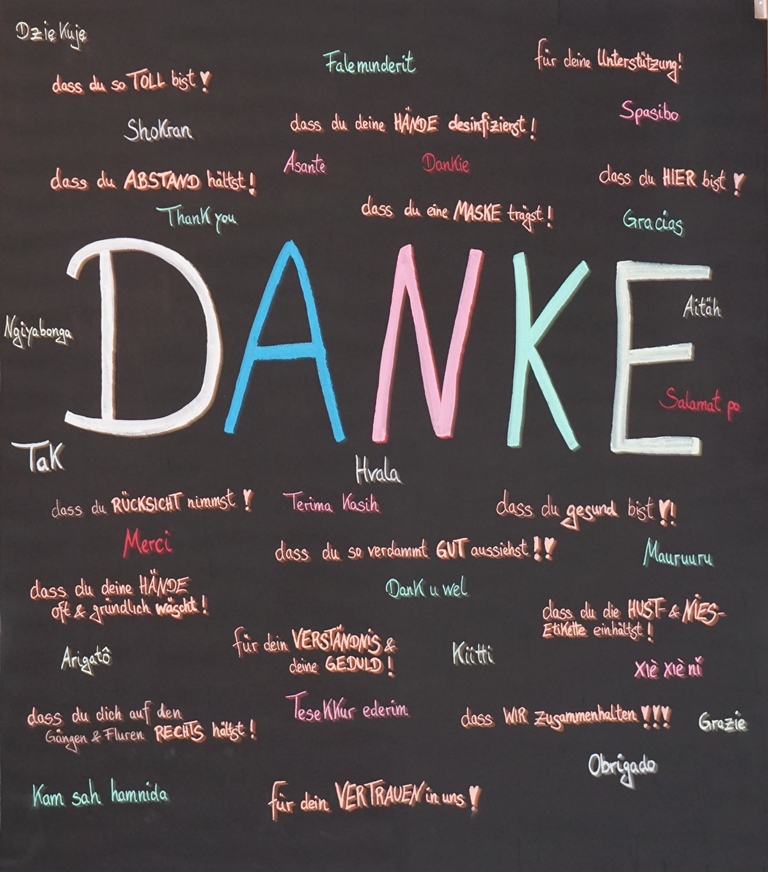 Dzię Kuję
Faleminderit
für deine Unterstützung!
dass du so TOLL bist!
Spasibo
Shokran
dass du deine HÄNDE desinfizierst!
Asante
Dankie
dass du ABSTAND hältst!
dass du HIER bist!
Thank you
dass du eine MASKE trägst!
Gracias
DANKE
Aitäh
Ngiyabonga
Salamat po
Tak
Hvala
dass du RÜCKSICHT nimmst!
Terima Kasih
dass du gesund bist!!
Merci
dass du so verdammt GUT aussiehst!!
Mauruuru
dass du deine HÄNDE
oft & gründlich wäscht!
Dank u wel
dass du die HUST- & NIES-
Etikette einhältst!
für dein VERSTÄNDNIS &
deine GEDULD!
Arigatô
Kiitti
Xiè xiè nǐ
dass du dich auf den
Gängen & Fluren RECHTS hältst!
TeseKKur ederim
dass WIR zusammenhalten!!!
Grazie
Obrigado
Kam sah hamnida
für dein VERTRAUEN in uns!